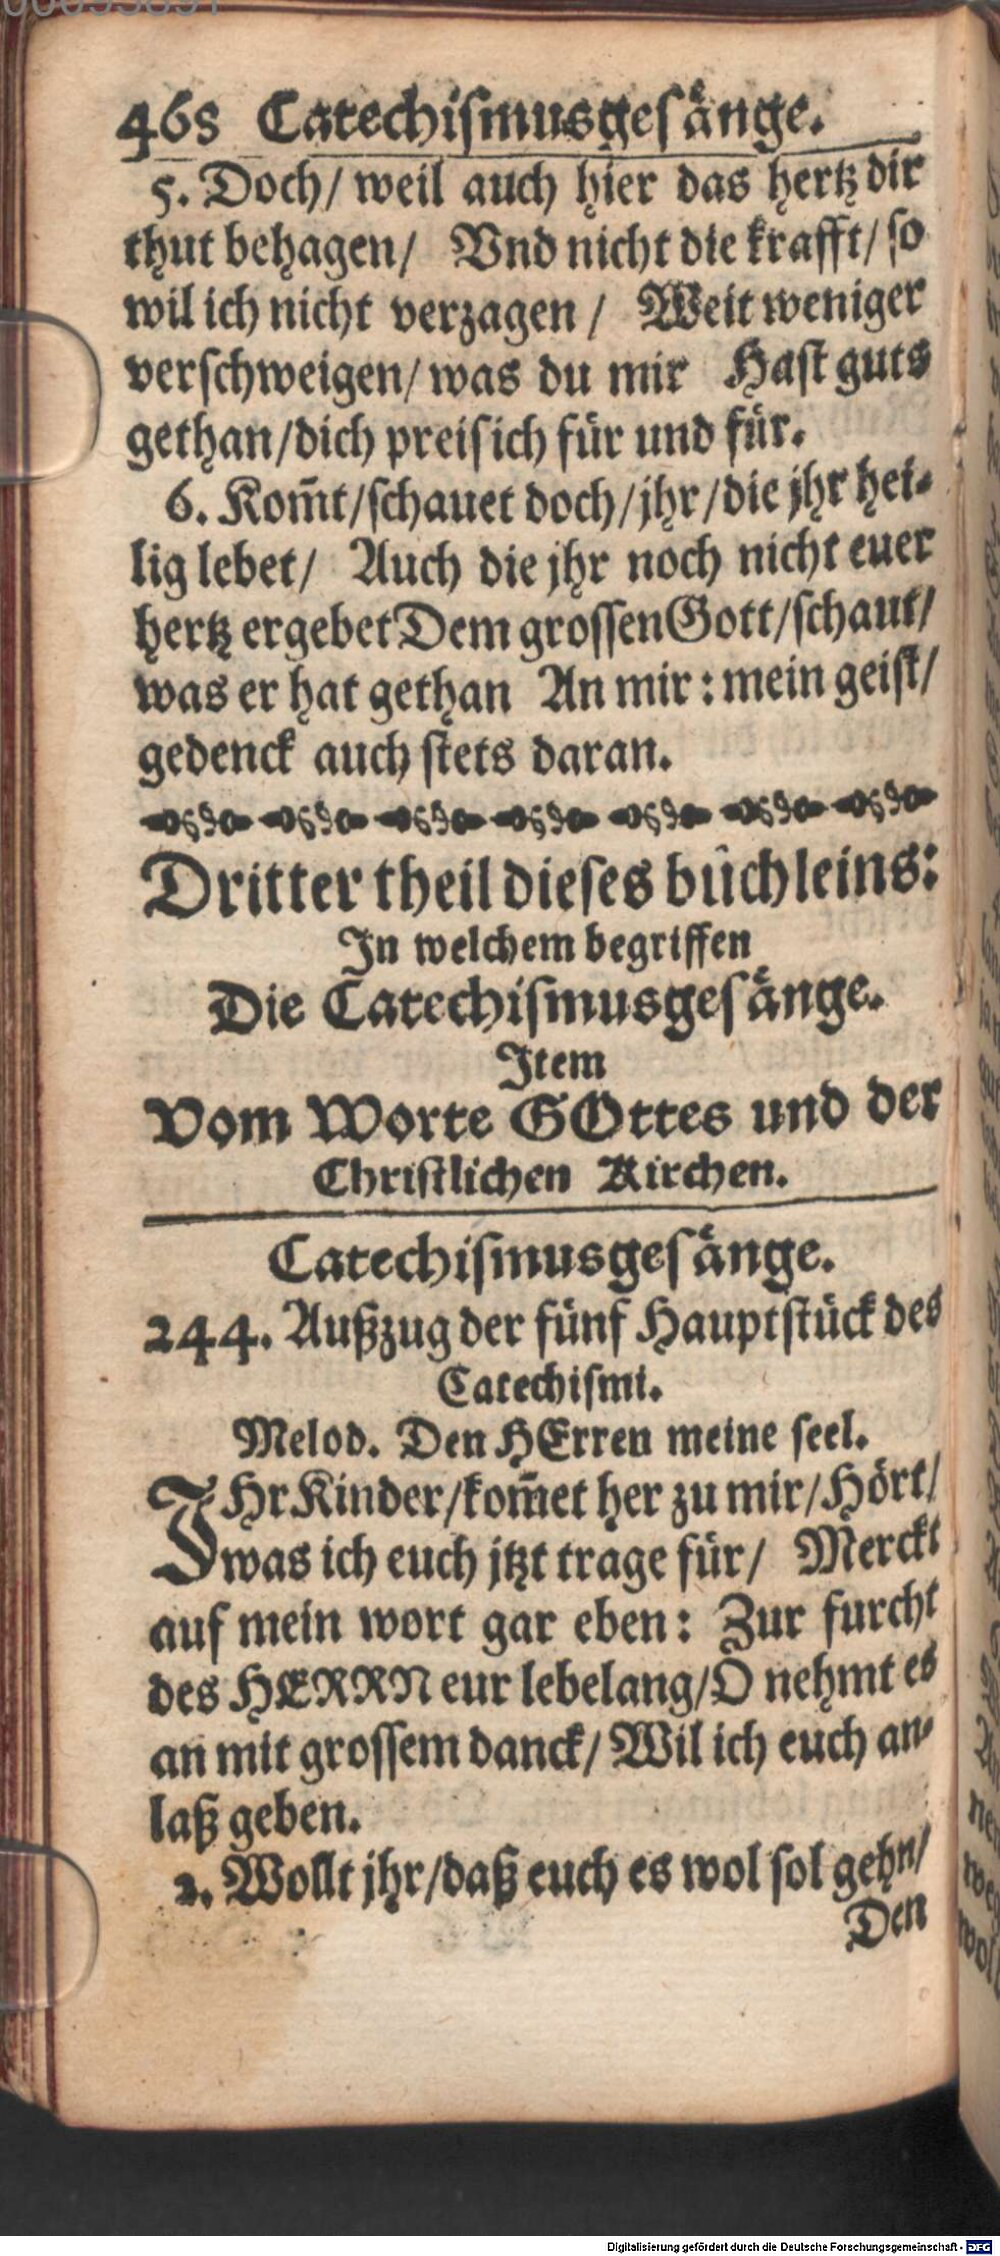 468 Catechiſmusgeſånge.
5. Doch/ weil auch hier das hertz dir
thut behagen/ Vnd nicht die krafft/ ſo
wil ich nicht verzagen / Weit weniger
verſchweigen/ was du mir Haſt guts
gethan/dich preiſ ich für und für.
6. Kom̃t/ſchauet doch/jhr/die jhr hei-
lig lebet/ Auch die jhr noch nicht euer
hertz ergebet Dem groſſen Gott/ſchaut/
was er hat gethan An mir: mein geiſt/
gedenck auch ſtets daran.
Dritter theil dieſes bůchleins:
In welchem begriffen
Die Catechiſmusgeſånge.
Item
Vom Worte GOttes und der
Chriſtlichen Kirchen.
Catechiſmusgeſånge.
244. Außzug der fünf Hauptſtück des
Catechiſmi.
Melod. Den HErren meine ſeel.
IHr Kinder/kom̃et her zu mir/Hört/
was ich euch jtzt trage für/ Merckt
auf mein wort gar eben: Zur furcht
des HERRN eur lebelang/O nehmt es
an mit groſſem danck/ Wil ich euch an-
laß geben.
2. Wollt jhr/daß euch es wol ſol gehn/
Den
Digitalisierung gefördert durch die Deutsche Forschungsgemeinschaft - DFG